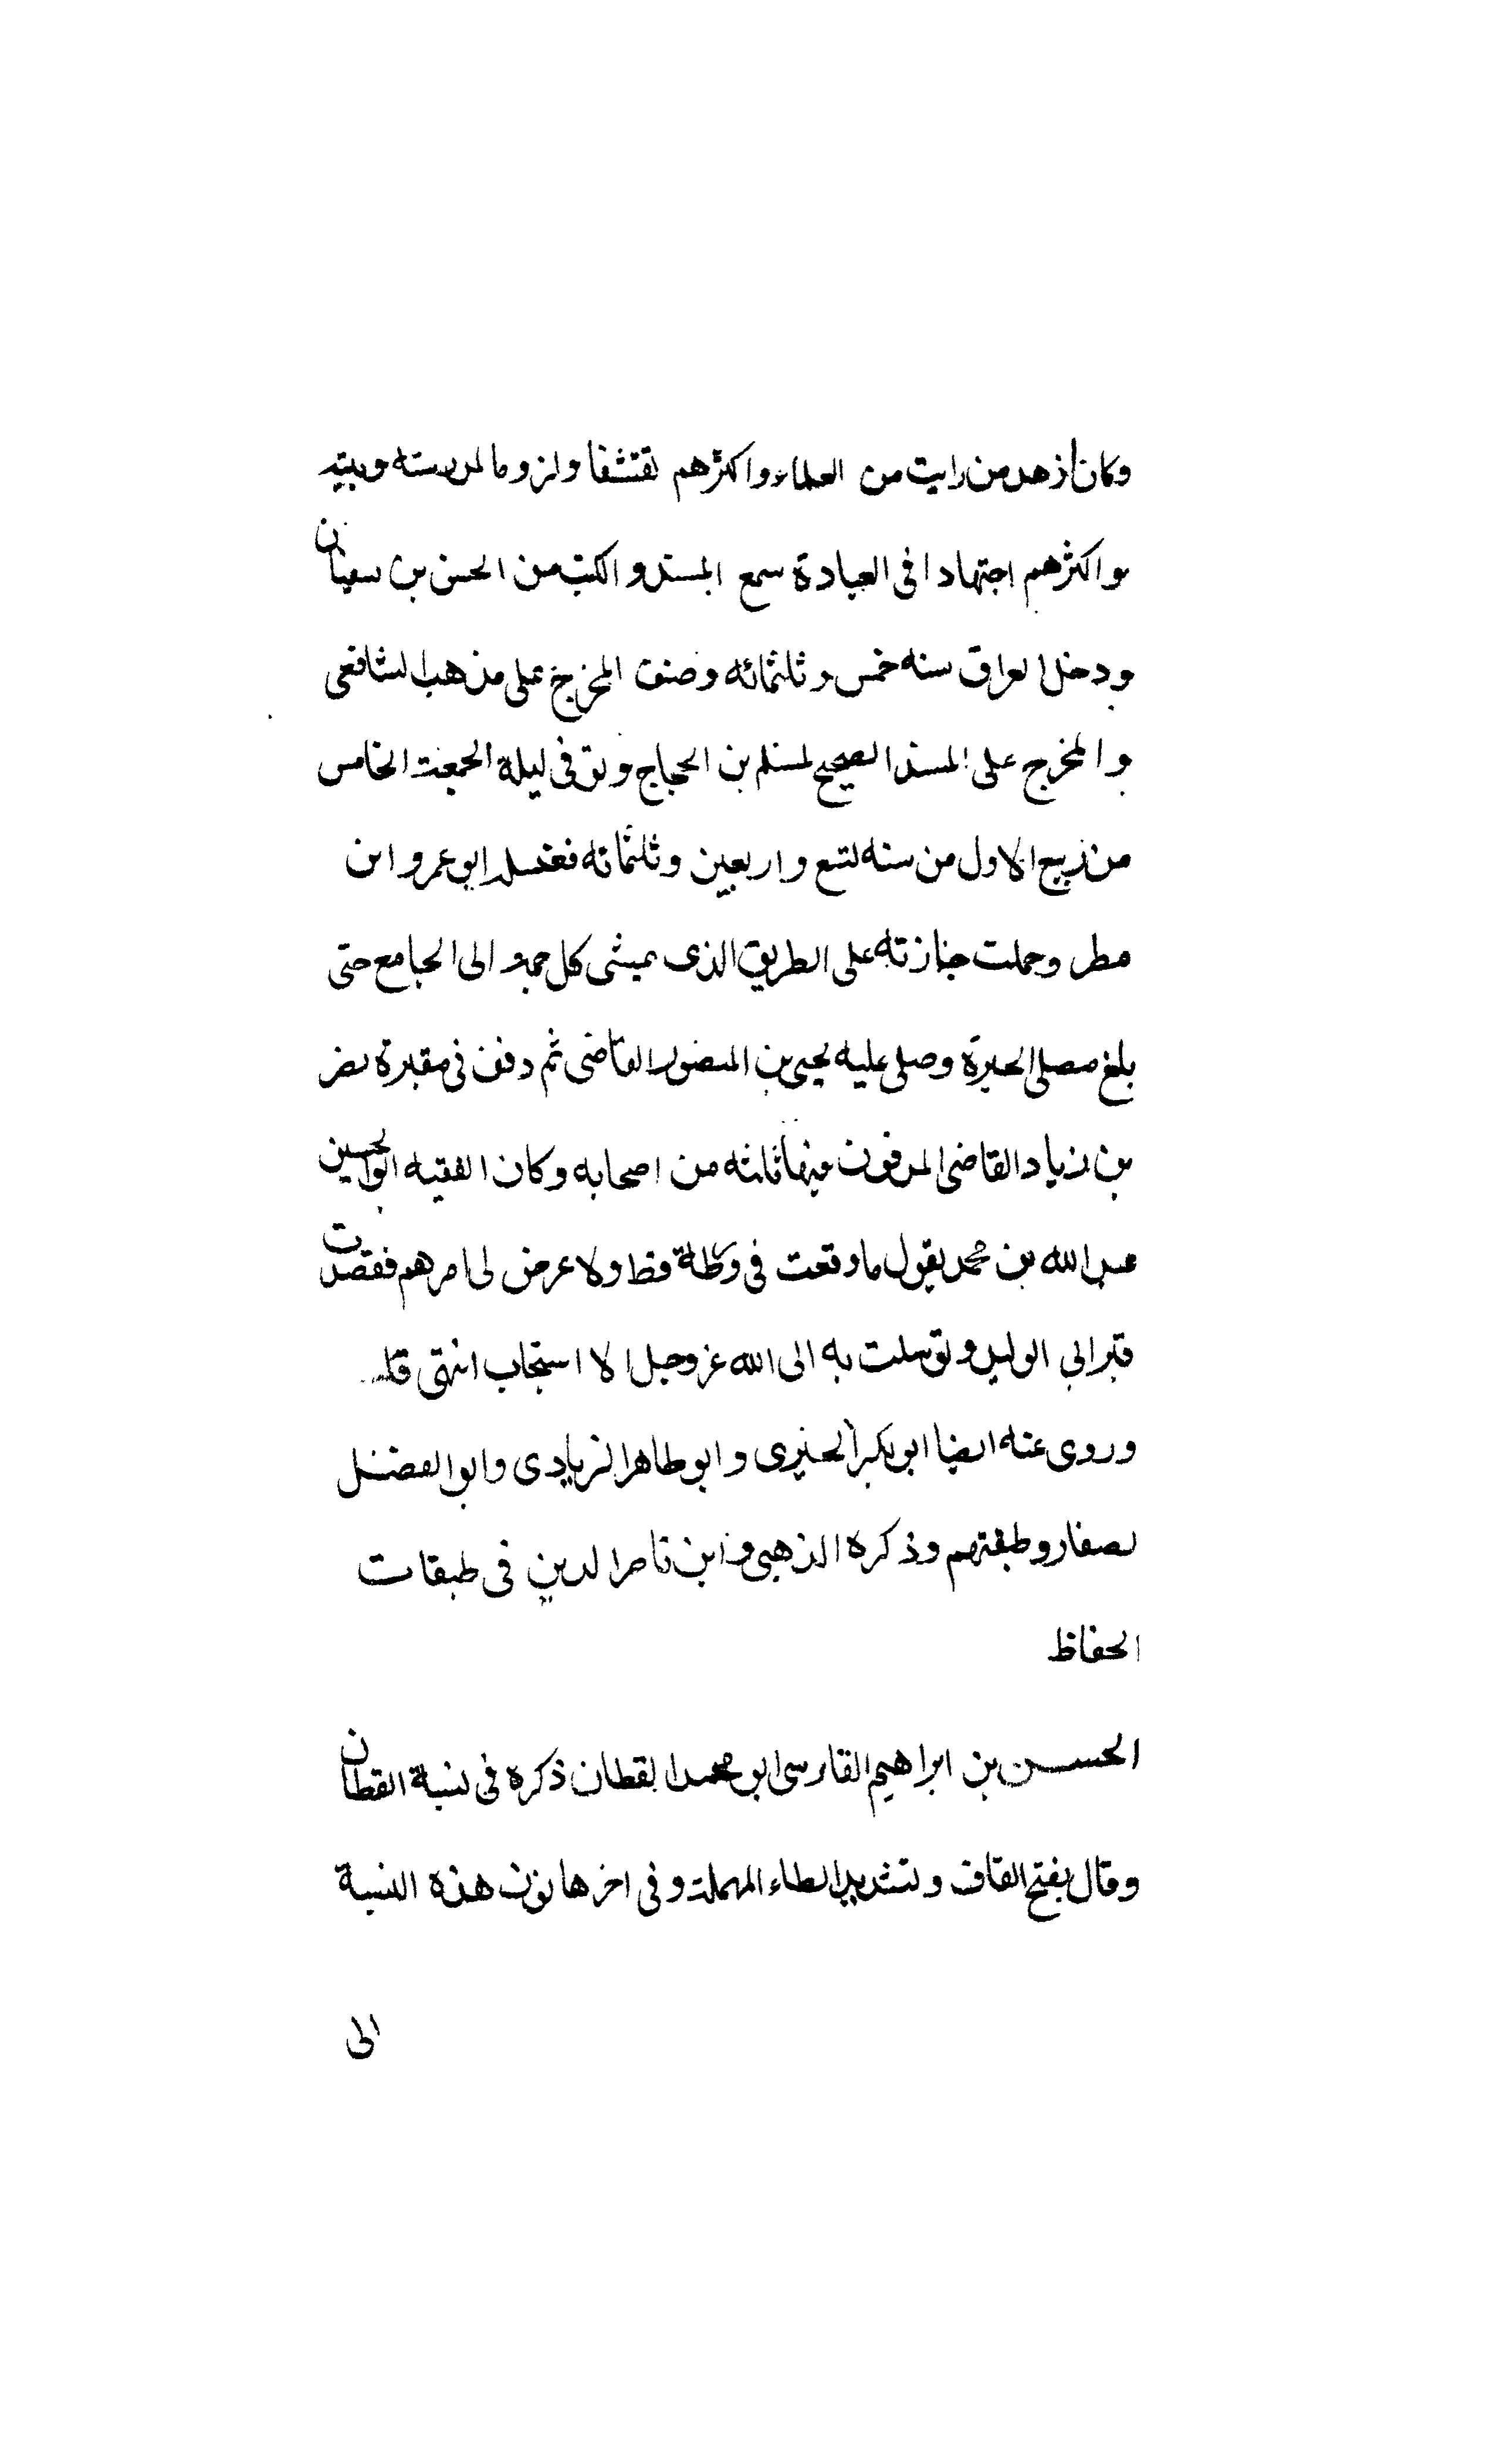 وكان ازهد من رايت من العلماء واكثرهم تقشفا ولزوما لمدرسته وبيته
واكثرهم اجتهادا فى العبادة سمع المسند والكتب من الحسن بن سفيان
ودخل العراق سنه خمس وثلثمائه وصنف المخرج على مذهب الشافعى
والمخرج على المسند الصحيح لمسلم بن الحجاج وتوفى ليلة الجمعة الخامس
من ربيع الاول من سنه تسع واربعين وثلثمائه فغسله ابو عمرو ابن
مطر وحملت جنازته على الطريق الذى يمشى كل جمعة الى الجامع حتى
بلغ مصلى الحيرة وصلى عليه يحيى بن المنصور القاضى ثم دفن فى مقبرة نصر
بن زياد القاضى المدفون فيها ثلثه من اصحابه وكان الفقيه ابو الحسين
عبد الله بن محمد يقول ما وقعت فى ورطة قط ولا عرض لى امر هم فقصدت
قبر ابى الوليد وتوسلت به الى الله عز وجل الا استجاب انتهى قلت
وروى عنه ايضا ابو بكر الحيرى وابو طاهر الزيادى وابو الفضل
لصفار وطبقتهم وذكره الذهبى وابن ناصر الدين فى طبقات
الحفاظ
الحسن بن ابراهيم الفارسى ابو محمد القطان ذكره فى نسبة القطان
وقال بفتح القاف وتشديد الطاء المهملة وفى اخرها نون هذه النسبة
الى